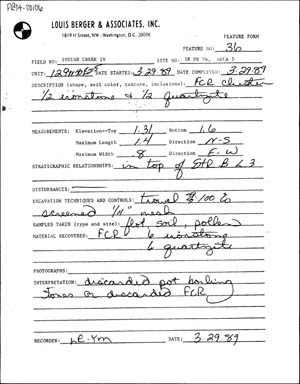 PR34-00106
LOUIS BERGER & ASSOCIATES, INC.
1819 H Street, NW - Washington, D.C. 20006
FEATURE FORM
FEATURE NO: 36
FIELD NO: INDIAN CREEK IV 18 PR 94, AREA 3
UNIT: DATE STARTED: 3-29-89 DATE COMPLETED: 3-29-89
DESCRIPTION (shape, soil color, texture, inclusions): FCR cluster
1/2 ironstone & 1/2 quartzite
MEASUREMENTS: Elevation--Top 1.31 Bottom 1.6
Maximum Length 14 Direction N-S
Maximum Width 8 Direction E-W
STRATIGRAPHIC RELATIONSHIPS: in top of Str B L 3
DISTURBANCES:
EXCAVATION TECHNIQUES AND CONTROLS: trowel 100%
screened 1/4" mesh
SAMPLES TAKEN (type and size): flot, soil, pollen
MATERIAL RECOVERED: FCR 6 ironstone
6 quartzite
PHOTOGRAPHS:
INTERPRETATION: discarded pot boiling
stones or discarded FCR
RECORDER: DATE: 3-29-89